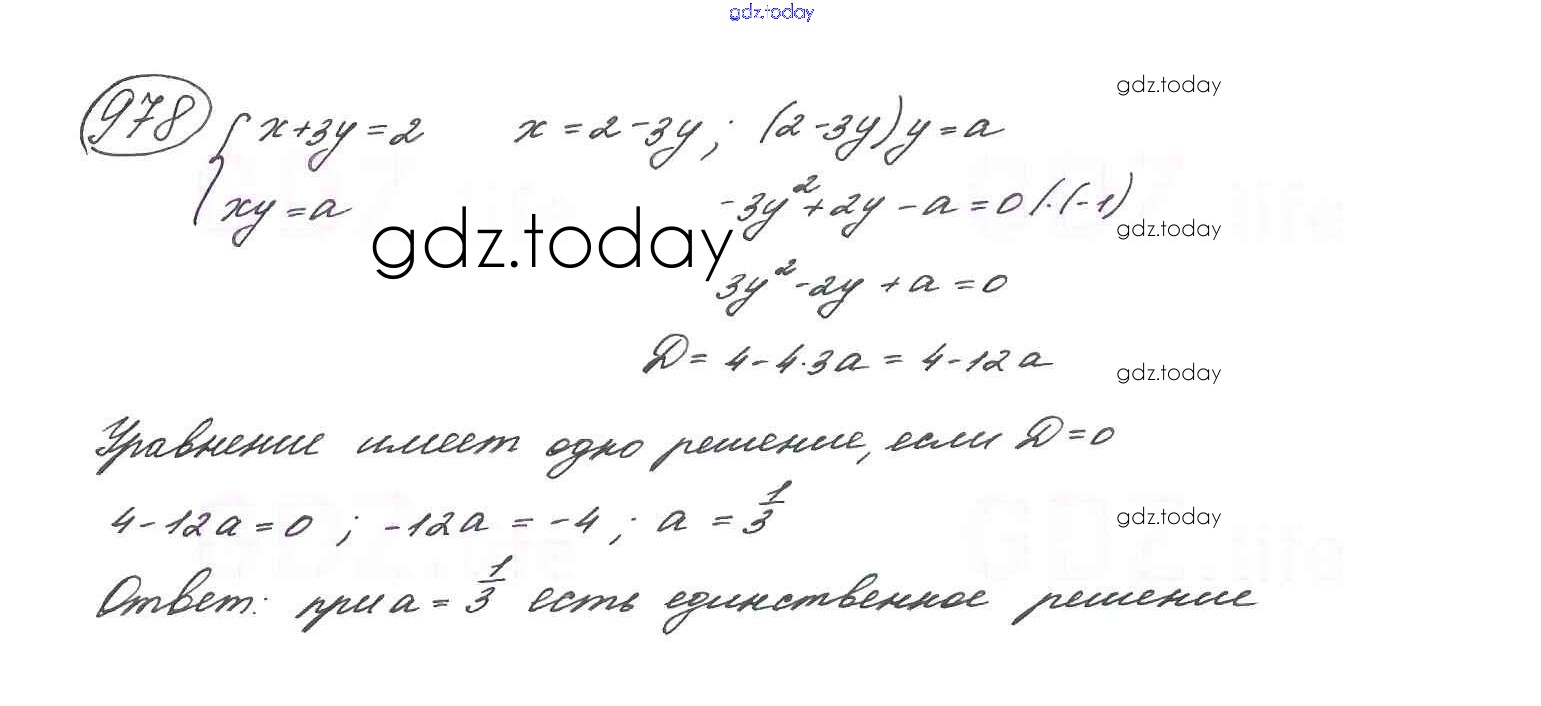 gdz.today
978 { x+3y=2   x=2-3y; (2-3y)y=a
gdz.today
xy=a   -3y²+2y-a=0 |·(-1)
gdz.today
gdz.today
3y²-2y+a=0
D=4-4·3a=4-12a
gdz.today
Уравнение имеет одно решение, если D=0
4-12a=0; -12a=-4; a=1/3
gdz.today
Ответ: при a=1/3 есть единственное решение